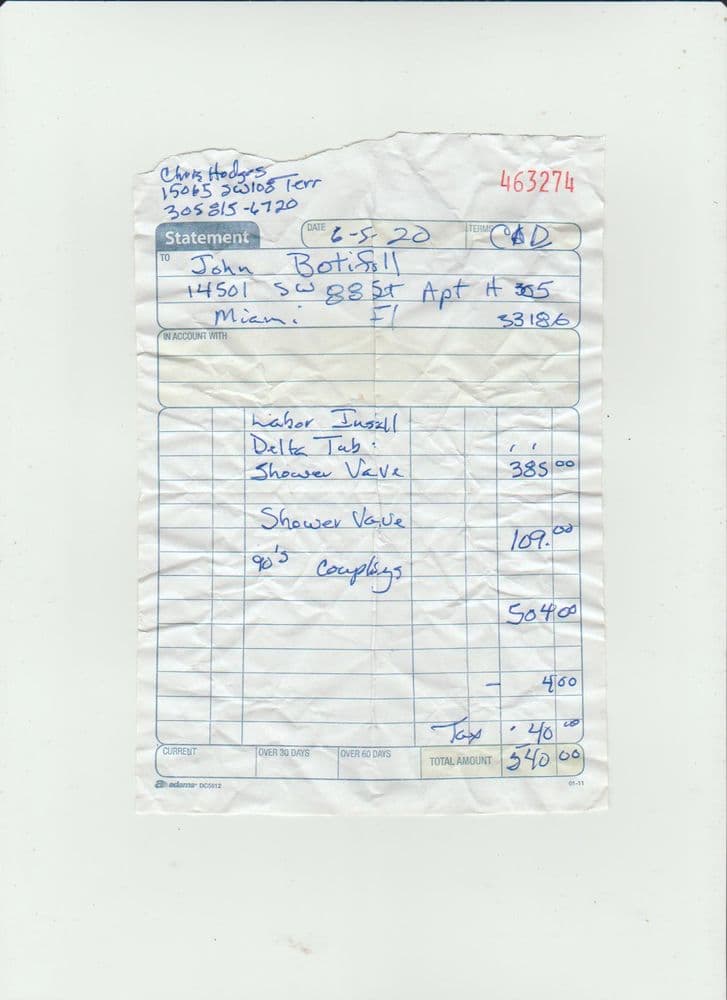 Chris Hodges
15065 SW 108 Terr
305 815-6720
463274
Statement
DATE 6-5-20
TERMS COD
TO John Botifoll
14501 SW 88 St Apt H 305
Miami Fl 33186
IN ACCOUNT WITH
Labor Insall
Delta Tub:
Shower Vave 385 00
Shower Vavue
109.00
90's Couplings
504 00
- 4 00
Tax 40 00
CURRENT OVER 30 DAYS OVER 60 DAYS TOTAL AMOUNT 540 00
adams DC5812 01-11